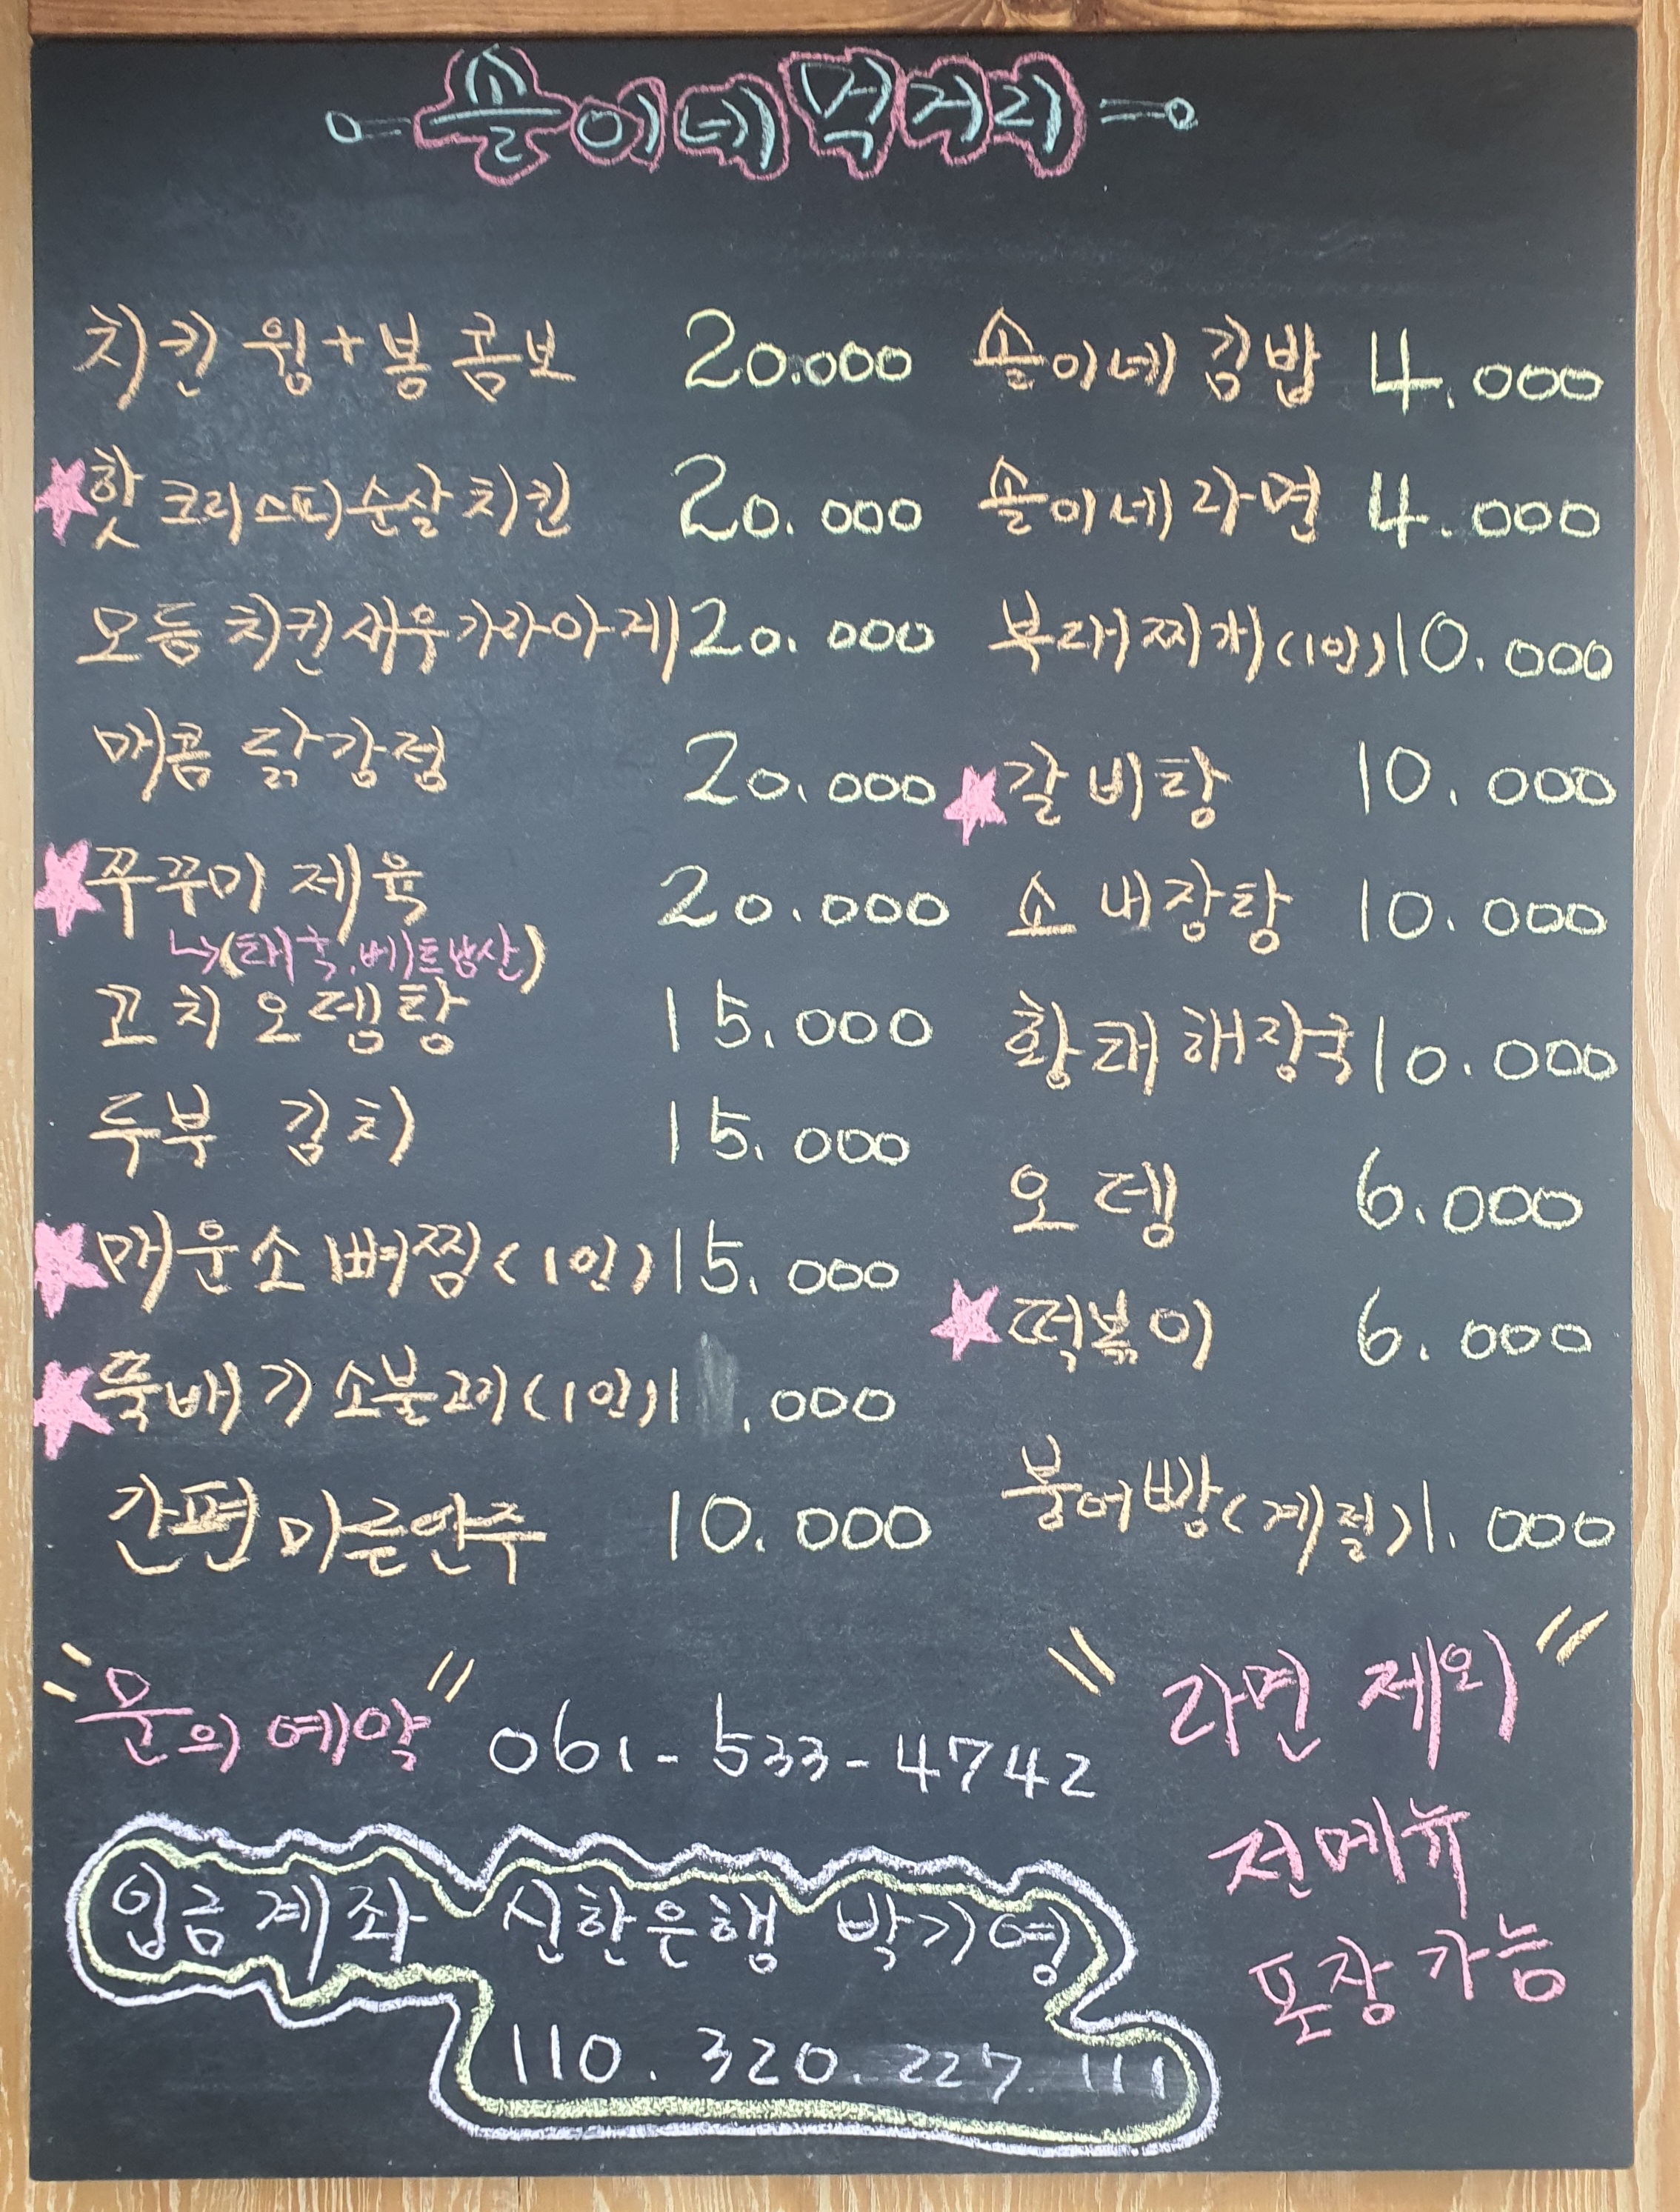 솔이네 먹거리
치킨 윙+봉 콤보 20.000
핫 크리스피 순살 치킨 20.000
모듬 치킨 새우 가라아게 20.000
매콤 닭강정 20.000
쭈꾸미 제육 20.000
↳(태국.베트남산)
꼬치 오뎅탕 15.000
두부 김치 15.000
매운소 뼈찜(1인) 15.000
뚝배기 소불고기(1인) 1 .000
간편 마른안주 10.000
솔이네 김밥 4.000
솔이네 라면 4.000
부대찌개(1인) 10.000
갈비탕 10.000
소 내장탕 10.000
황태 해장국 10.000
오뎅 6.000
떡볶이 6.000
붕어빵(계절) 1.000
"문의 예약" 061-533-4742
입금계좌 신한은행 박기영
110.320.227.111
"라면 제외"
전메뉴
포장 가능